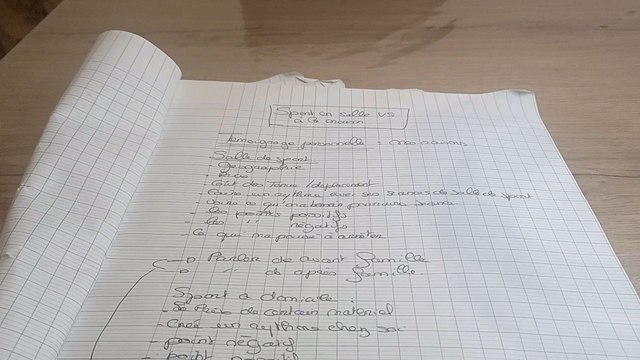 Sport en salle VS
à la maison
Temoignage personnelle : mes raisons
Salle de sport
- Géographie
- Prix
- Coût des tenue / déplacement
- rythme avec ses séances de salle de sport
- ce qui
- les points positifs
- les " négatifs
- Ce qui ma poussé à arrêter
Parler de avant famille
" de après famille
Sport a domicile :
- Le Prix de certain material
- Créé un rythme chez soi
- point négatif
- point positif